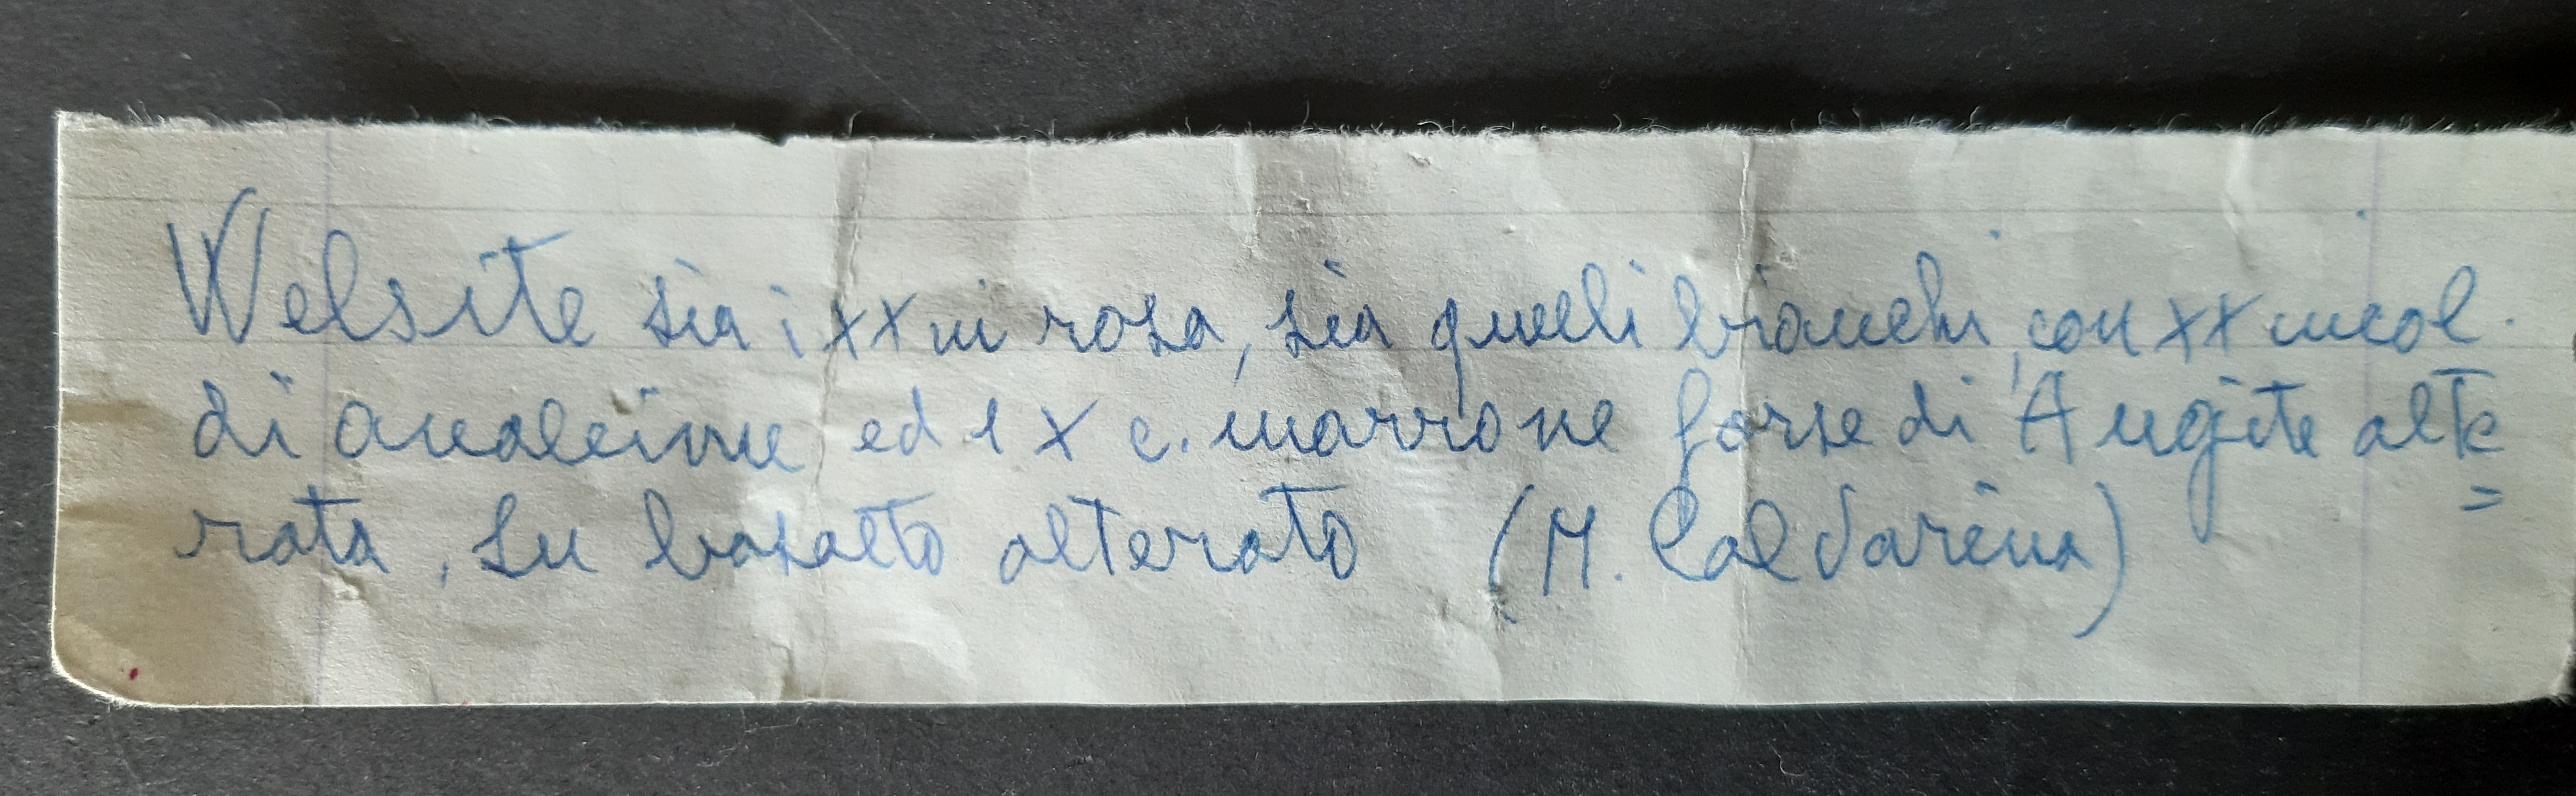 Welsite sia i xx ni rosa, sia quelli bianchi, con xx incol.
di analcime ed 1 x c. marrone forse di Augite alte
rata, su basalto alterato (M. Caldarina) =